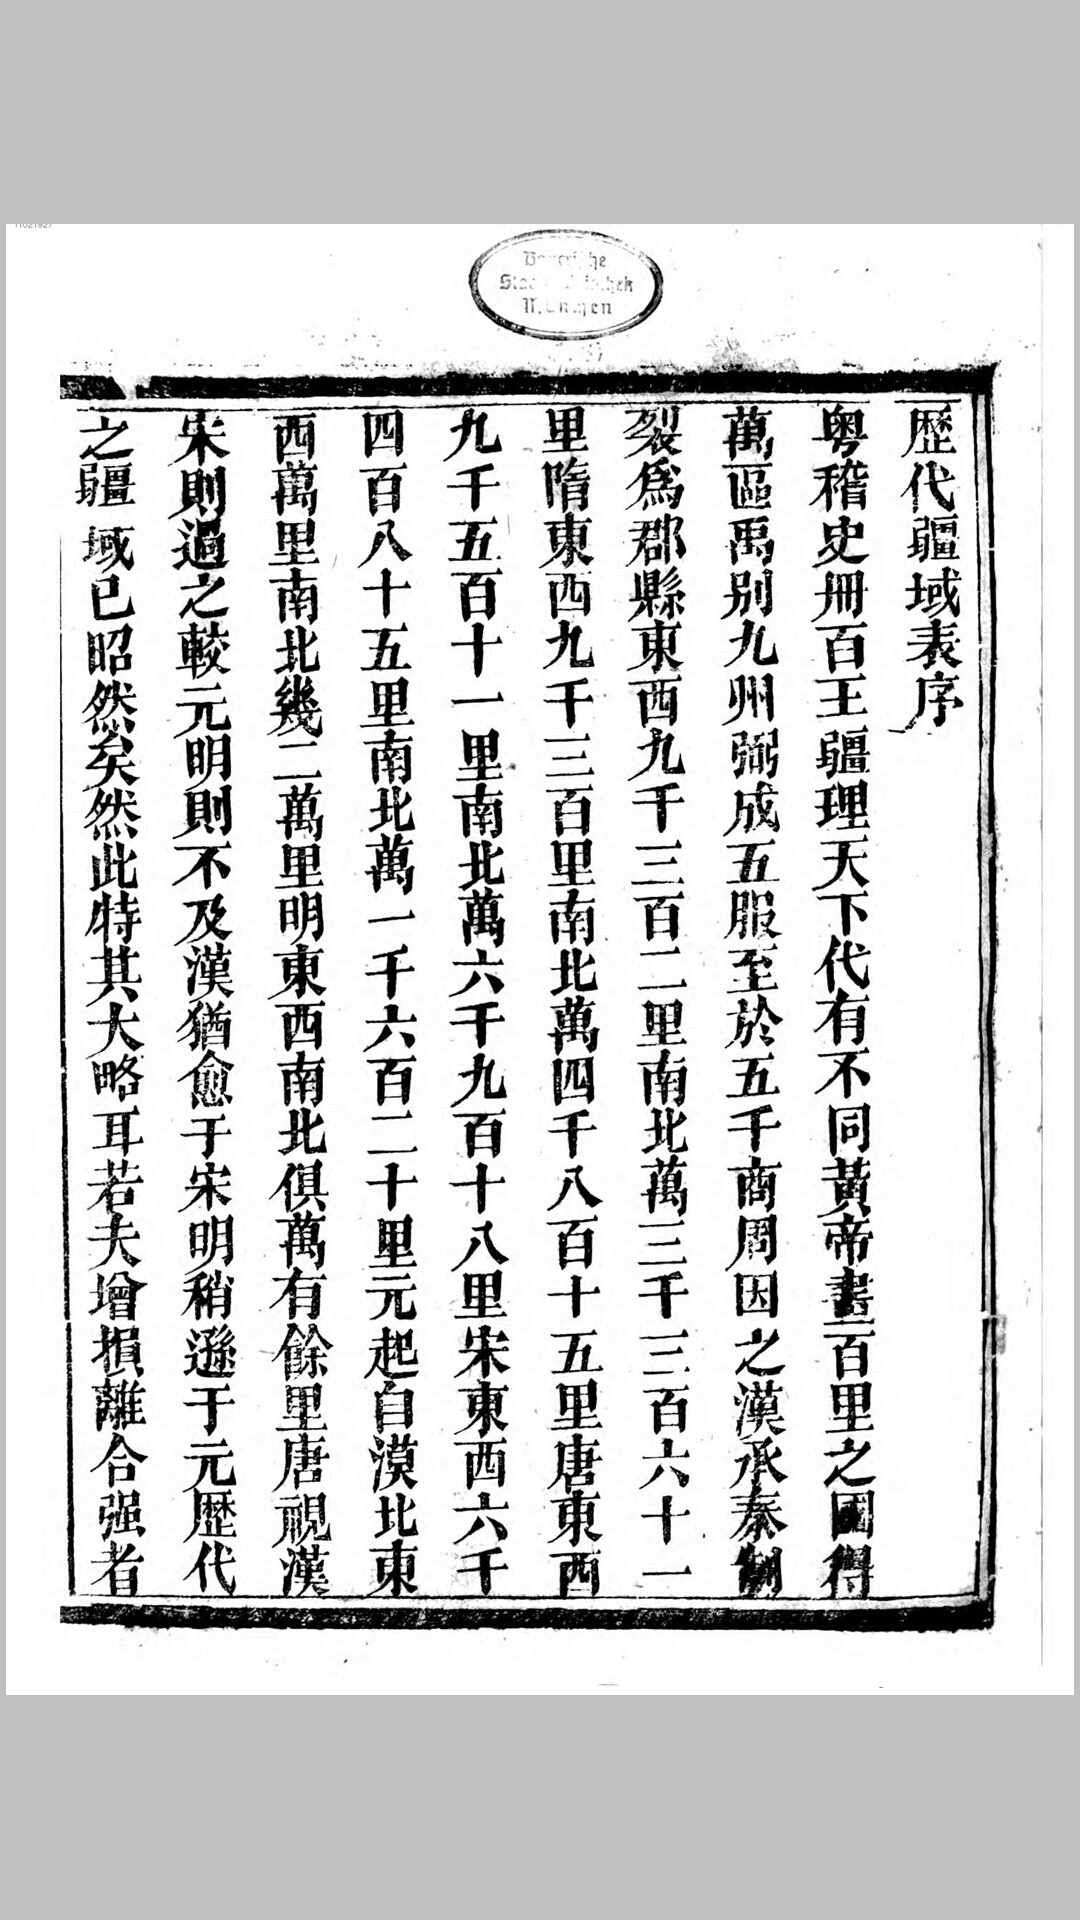 11021927
Bayerische
Staatsbibliothek
München
歷代疆域表序
粵稽史冊百王疆理天下代有不同黃帝畫百里之國得
萬區禹別九州弼成五服至於五千商周因之漢承秦制
裂爲郡縣東西九千三百二里南北萬三千三百六十一
里隋東西九千三百里南北萬四千八百十五里唐東西
九千五百十一里南北萬六千九百十八里宋東西六千
四百八十五里南北萬一千六百二十里元起自漠北東
西萬里南北幾二萬里明東西南北俱萬有餘里唐視漢
宋則過之較元明則不及漢猶愈于宋明稍遜于元歷代
之疆域已昭然矣然此特其大略耳若夫增損離合强者